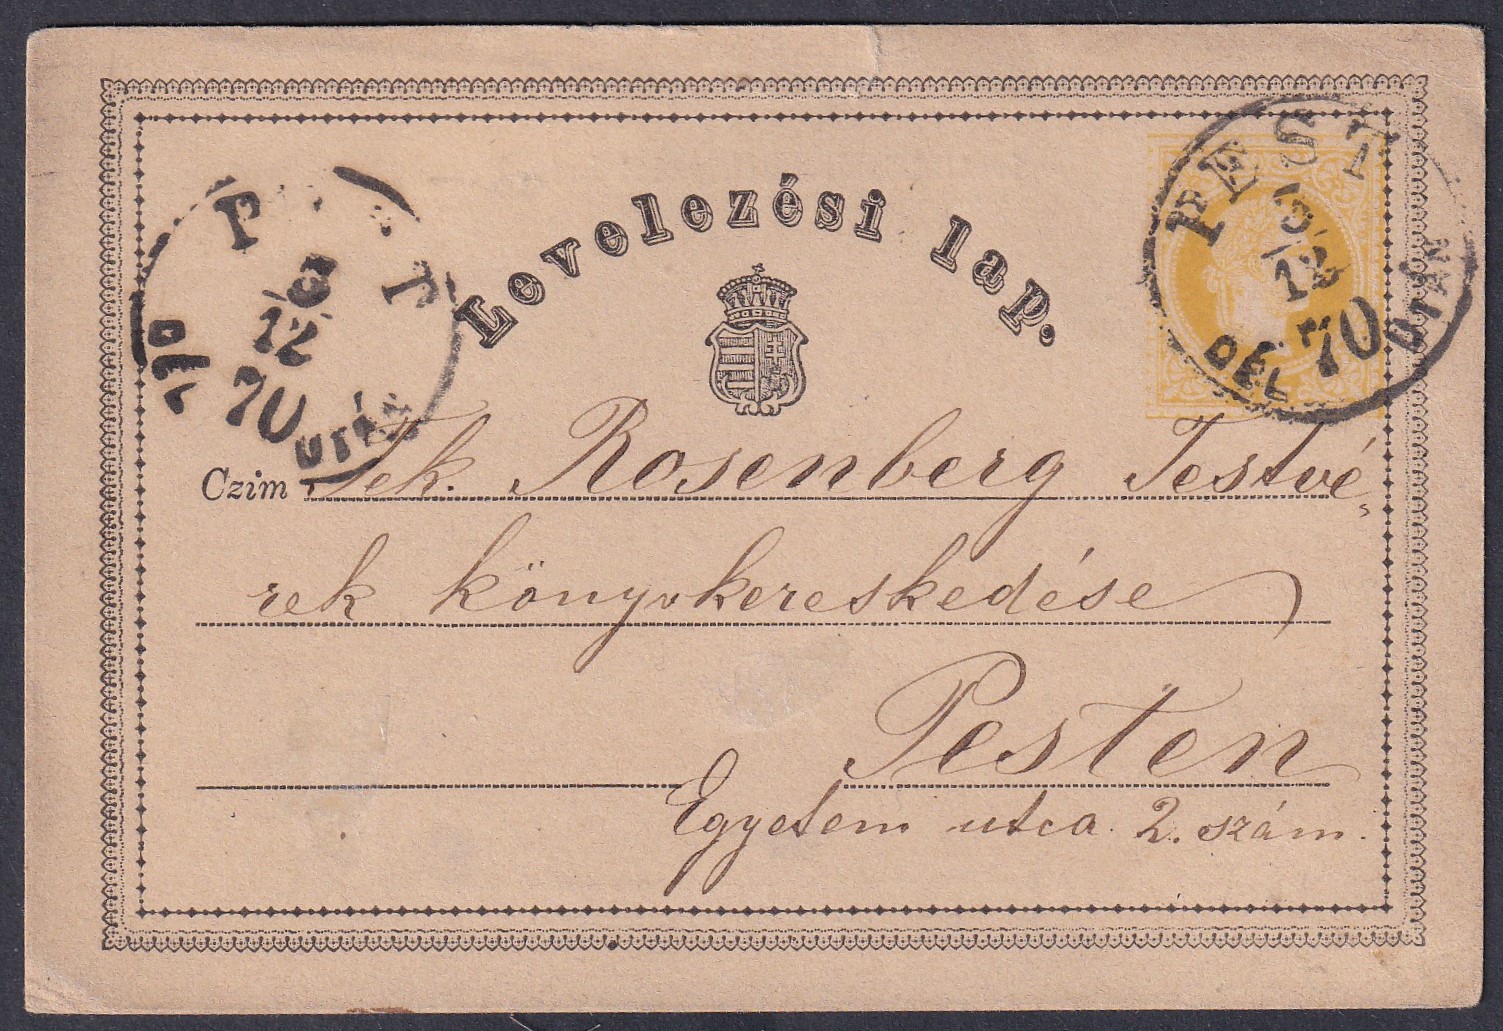 Levelezési lap.
PEST
3/12
70
DÉL UTÁN
P T
3/12
70
DÉL UTÁN
Czim Tek. Rosenberg Testvé
rek könyvkereskedése
Pesten
Egyetem utca 2. szám.